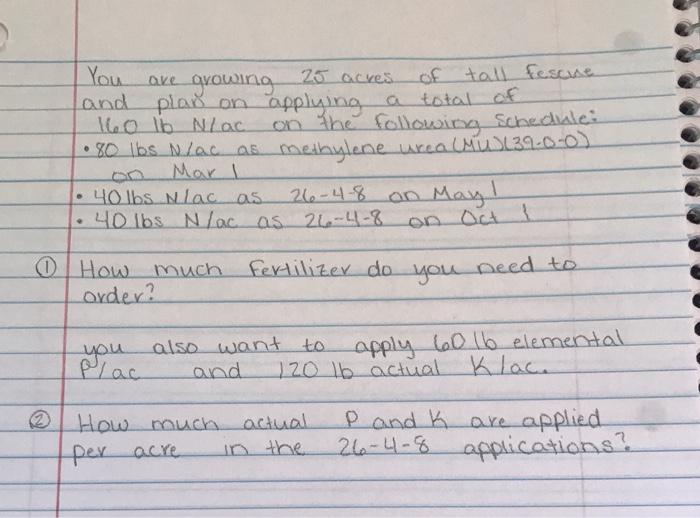 You are growing 25 acres of tall fescue
and plan on applying a total of
160 lb N/ac on the following schedule:
• 80 lbs N/ac as methylene urea (MU) (39-0-0)
on Mar 1
• 40 lbs N/ac as 26-4-8 on May 1
• 40 lbs N/ac as 26-4-8 on Oct 1
① How much fertilizer do you need to
order?
you also want to apply 60 lb elemental
P/ac and 120 lb actual K/ac.
② How much actual P and K are applied
per acre in the 26-4-8 applications?